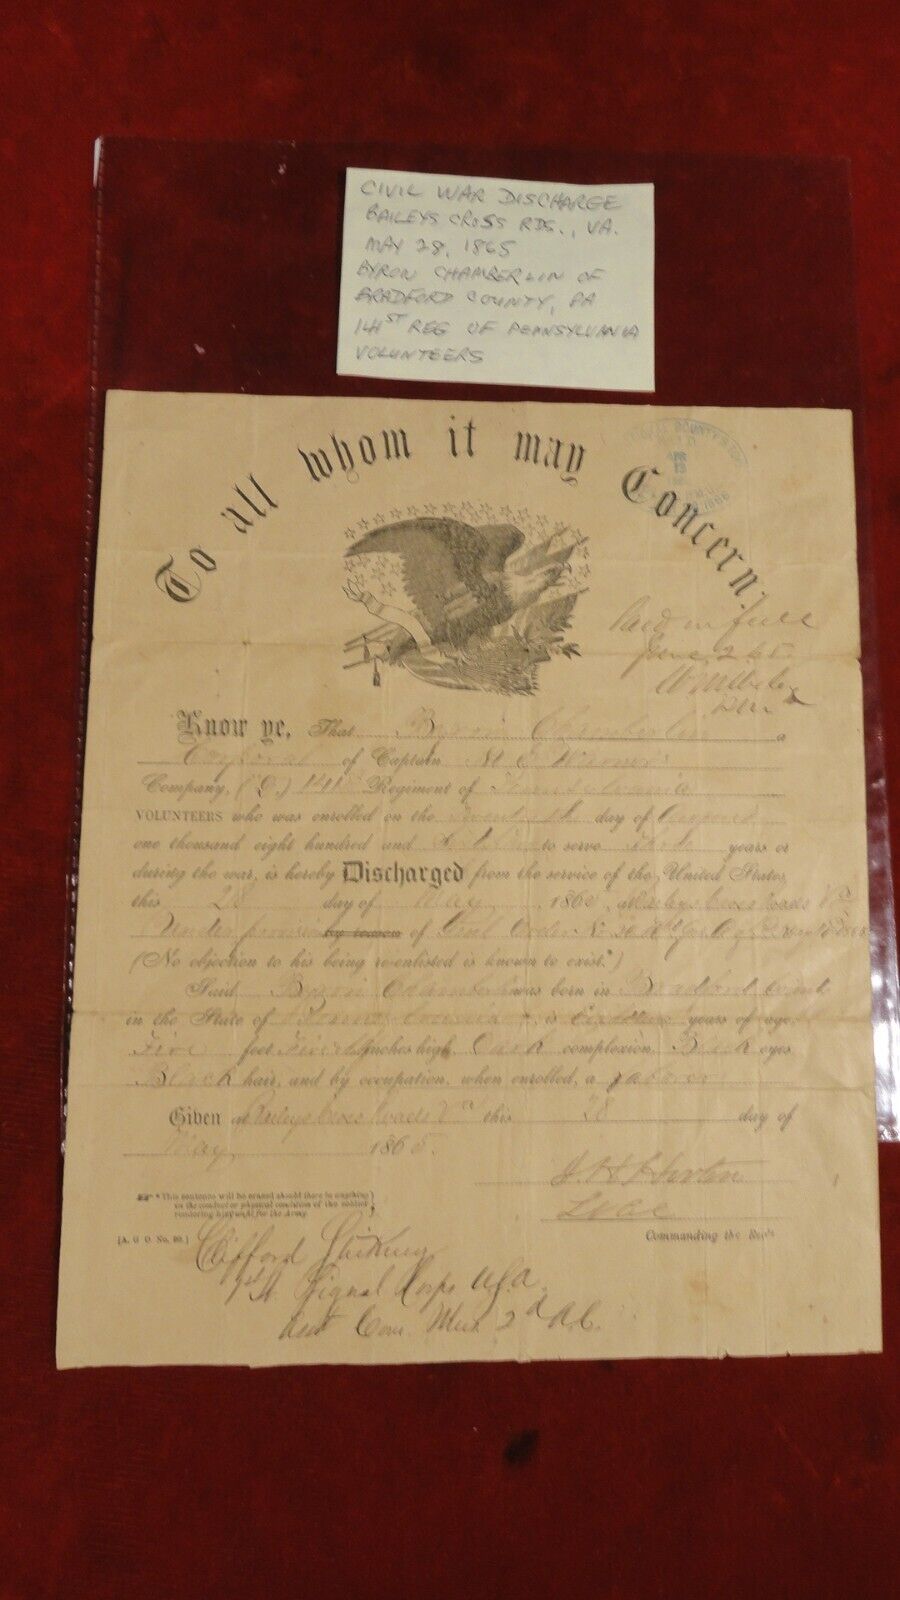 CIVIL WAR DISCHARGE
BAILEYS CROSS RDS., VA.
MAY 28, 1865
BYRON CHAMBERLIN OF
BRADFORD COUNTY, PA
141ST REG OF PENNSYLVANIA
VOLUNTEERS
To all whom it may Concern.
Paid in full
June 2 65
Know ye, That Byron Chamberlin a
Corporal of Captain M Warner's
Company, (D.) 141st Regiment of Pennsylvania
VOLUNTEERS who was enrolled on the day of August
one thousand eight hundred and to serve Three years or
during the war, is hereby Discharged from the service of the United States,
this 28 day of May, 1865, at Baileys Cross roads Va
Under by reason of Genl Order No
(No objection to his being reenlisted is known to exist.*)
Said Byron Chamberlin was born in Bradford County
in the State of Pennsylvania, is Eighteen years of age,
Five feet Five inches high, Dark complexion, Black eyes,
Black hair, and by occupation, when enrolled, a Laborer
Given at Baileys Cross Roads Va this 28 day of
May 1865.
Commanding the Reg't
*This sentence will be erased should there be anything
in the conduct or physical condition of the soldier
rendering him unfit for the Army.
[A. G. O. No. 99.]
Clifford
1st Lt Signal Corps U.S.A.
Asst Com. Mus. 2d A.C.